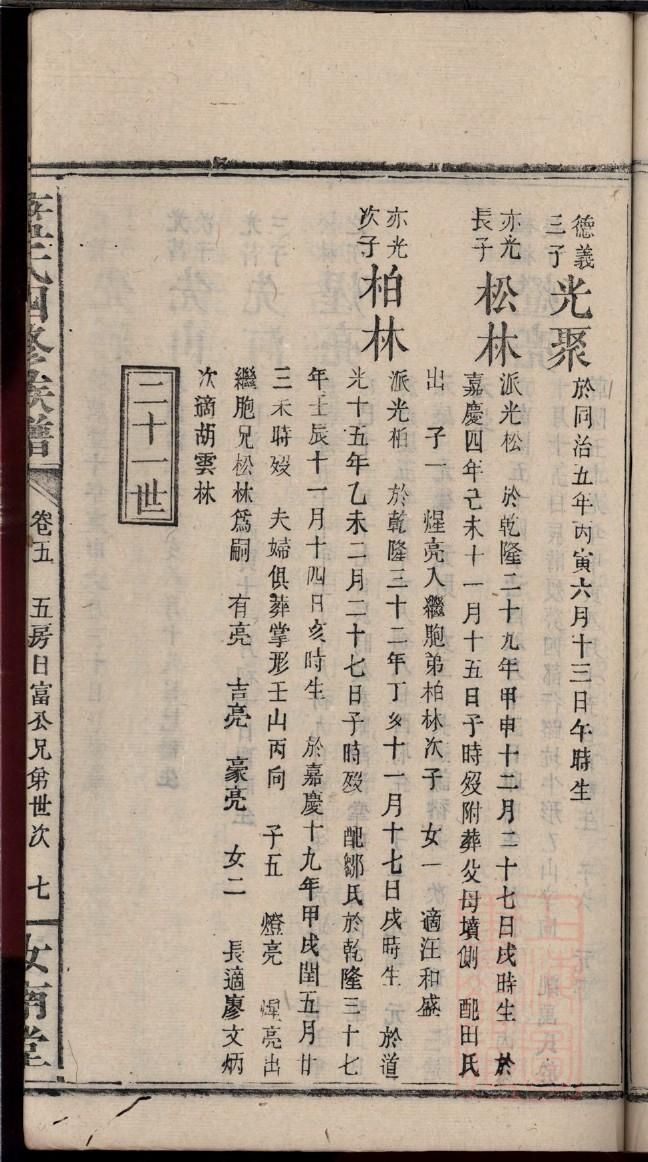 德義
三子
光聚
於同治五年丙寅六月十三日午時生
亦光
長子
松林
派光松 於乾隆二十九年甲申十二月二十七日戌時生 於
嘉慶四年己未十一月十五日子時歿附葬父母墳側 配田氏
出 子一 煋亮入繼胞弟柏林次子 女一 適汪和盛
亦光
次子
柏林
派光柏 於乾隆三十二年丁亥十一月十七日戌時生 於道
光十五年乙未二月二十七日子時歿 配鄒氏於乾隆三十七
年壬辰十一月十四日亥時生 於嘉慶十九年甲戌閏五月廿
三未時歿 夫婦俱葬掌形壬山丙向 子五 燈亮 煋亮出
繼胞兄松林爲嗣 有亮 吉亮 豪亮 女二 長適廖文炳
次適胡雲林
二十一世
氏四修族譜
卷五 五房日富公兄弟世次 七
汝南堂